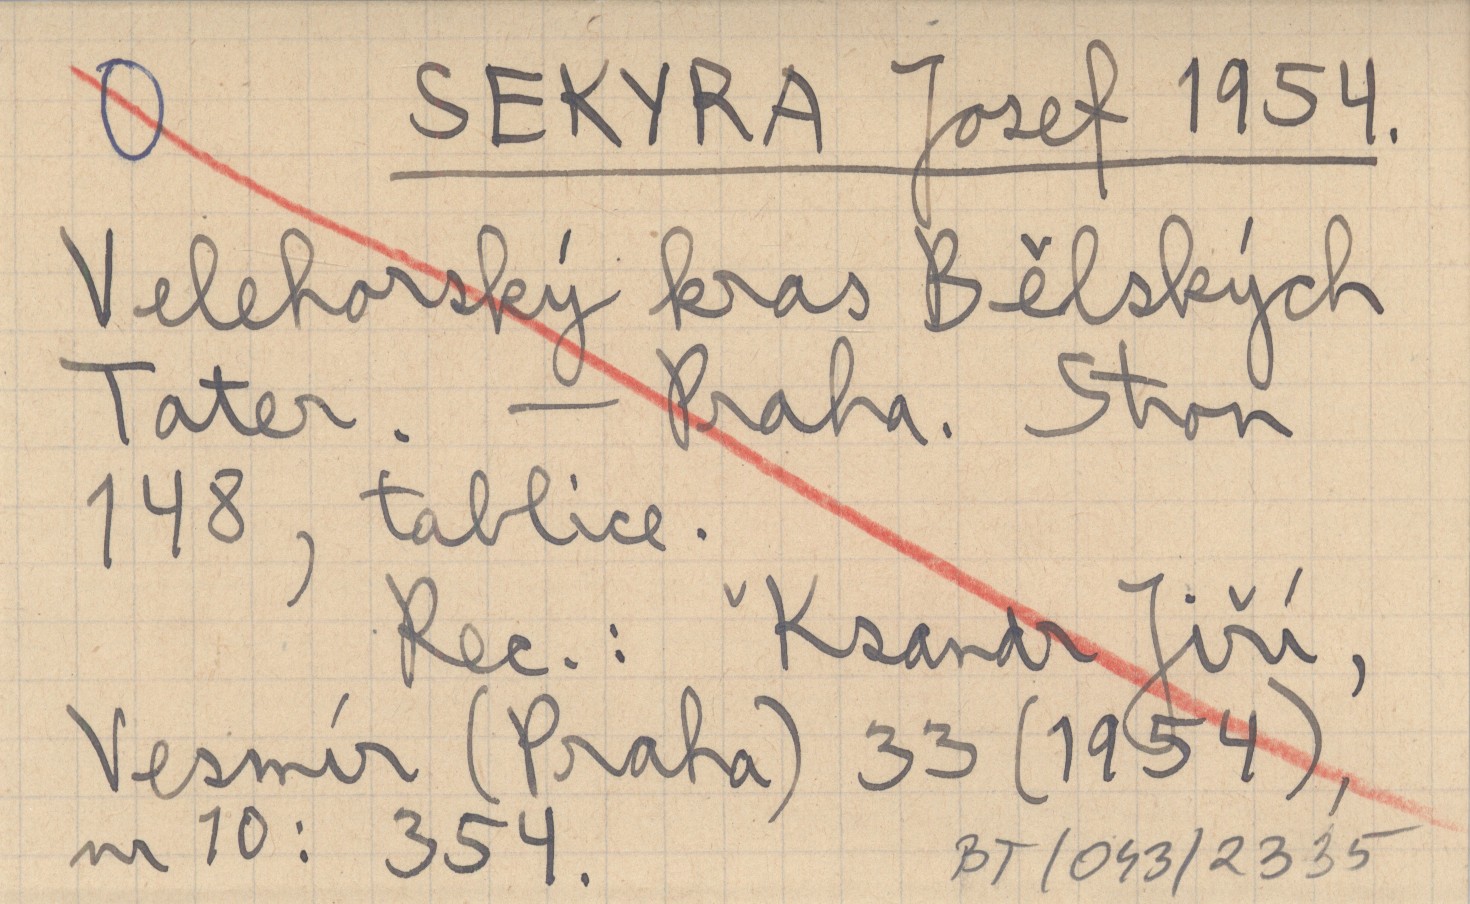 O SEKYRA Josef 1954.
Velehorský kras Bělských
Tater. — Praha. Stron
148, tablice.
Rec.: ˇKsandr Jiří,
Vesmír (Praha) 33 (1954),
nr 10: 354.
BT/043/2335